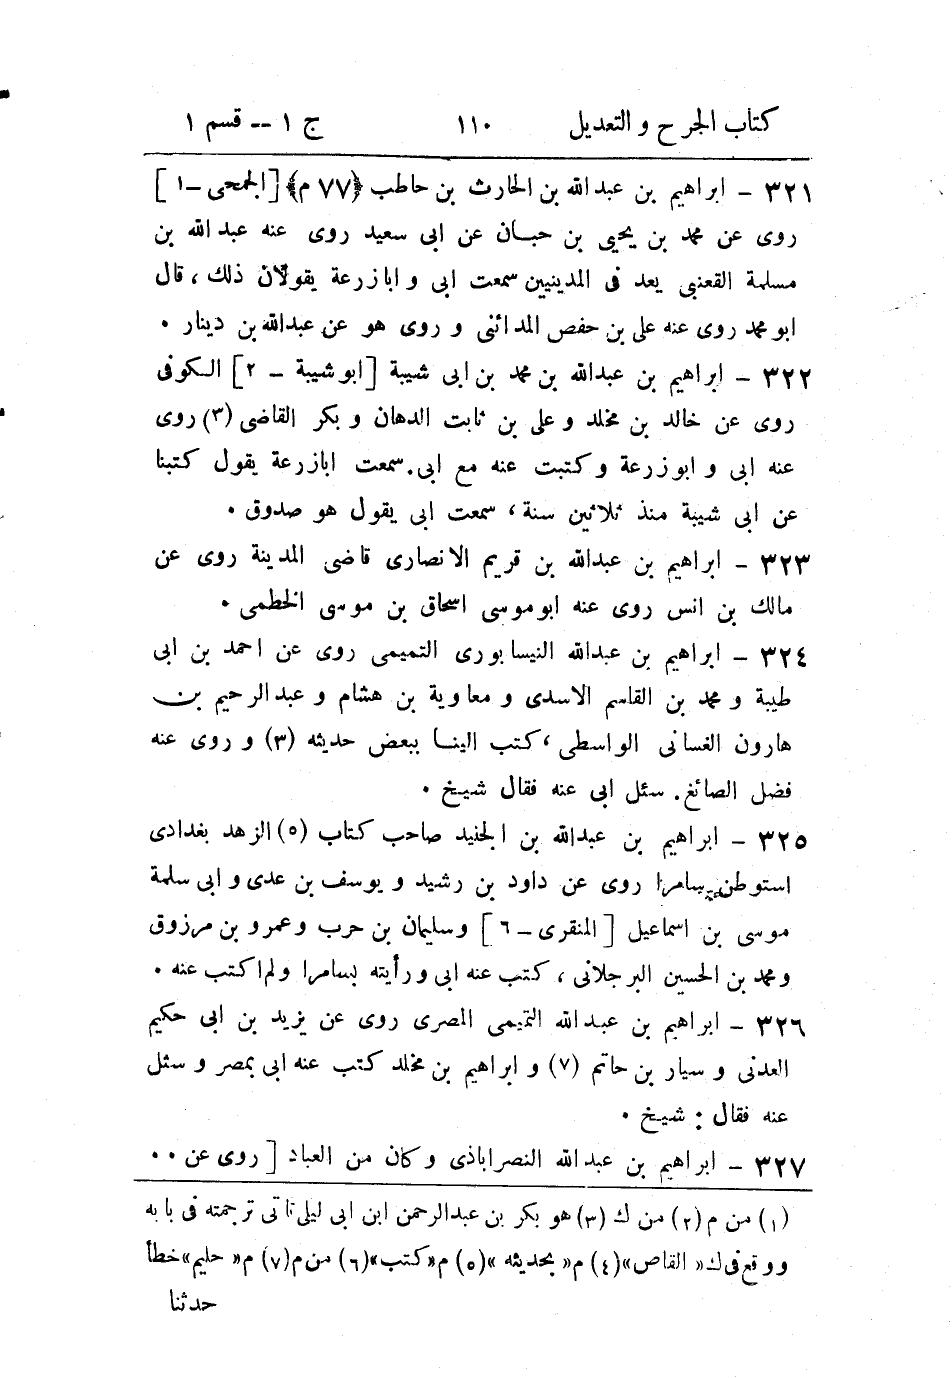 كتاب الجرح والتعديل ١١٠ ج ١ -- قسم ١
٣٢١ - ابراهيم بن عبد الله بن الحارث بن حاطب ﴿٧٧ م﴾ [الجمحى - ١]
روى عن محمد بن يحيى بن حبان عن ابى سعيد روى عنه عبد الله بن
مسلمة القعنبى يعد فى المدينيين سمعت ابى و ابا زرعة يقولان ذلك ، قال
ابو محمد روى عنه على بن حفص المدائنى و روى هو عن عبد الله بن دينار .
٣٢٢ - ابراهيم بن عبد الله بن محمد بن ابى شيبة [ابو شيبة - ٢] الكوفى
روى عن خالد بن مخلد و على بن ثابت الدهان و بكر القاضى (٣) روى
عنه ابى و ابو زرعة و كتبت عنه مع ابى. سمعت ابا زرعة يقول كتبنا
عن ابى شيبة منذ ثلاثين سنة ، سمعت ابى يقول هو صدوق .
٣٢٣ - ابراهيم بن عبد الله بن قريم الانصارى قاضى المدينة روى عن
مالك بن انس روى عنه ابو موسى اسحاق بن موسى الخطمى .
٣٢٤ - ابراهيم بن عبد الله النيسابورى التميمى روى عن احمد بن ابى
طيبة و محمد بن القاسم الاسدى و معاوية بن هشام و عبد الرحيم بن
هارون الغسانى الواسطى ، كتب الينا ببعض حديثه (٣) و روى عنه
فضل الصائغ. سئل ابى عنه فقال شيخ .
٣٢٥ - ابراهيم بن عبد الله بن الجنيد صاحب كتاب (٥) الزهد بغدادى
استوطن بسامرا روى عن داود بن رشيد و يوسف بن عدى و ابى سلمة
موسى بن اسماعيل [المنقرى - ٦] و سليمان بن حرب و عمرو بن مرزوق
و محمد بن الحسين البرجلانى ، كتب عنه ابى و رأيته بسامرا و لم اكتب عنه .
٣٢٦ - ابراهيم بن عبد الله التميمى المصرى روى عن يزيد بن ابى حكيم
العدنى و سيار بن حاتم (٧) و ابراهيم بن مخلد كتب عنه ابى بمصر و سئل
عنه فقال : شيخ .
٣٢٧ - ابراهيم بن عبد الله النصراباذى و كان من العباد [ روى عن ..
(١) من م (٢) من ك (٣) هو بكر بن عبد الرحمن ابن ابى ليلى تاتى ترجمته فى بابه
و وقع فى ك « القاص » (٤) م « بحديثه » (٥) م « كتب » (٦) من م (٧) م « حليم » خطأ
حدثنا